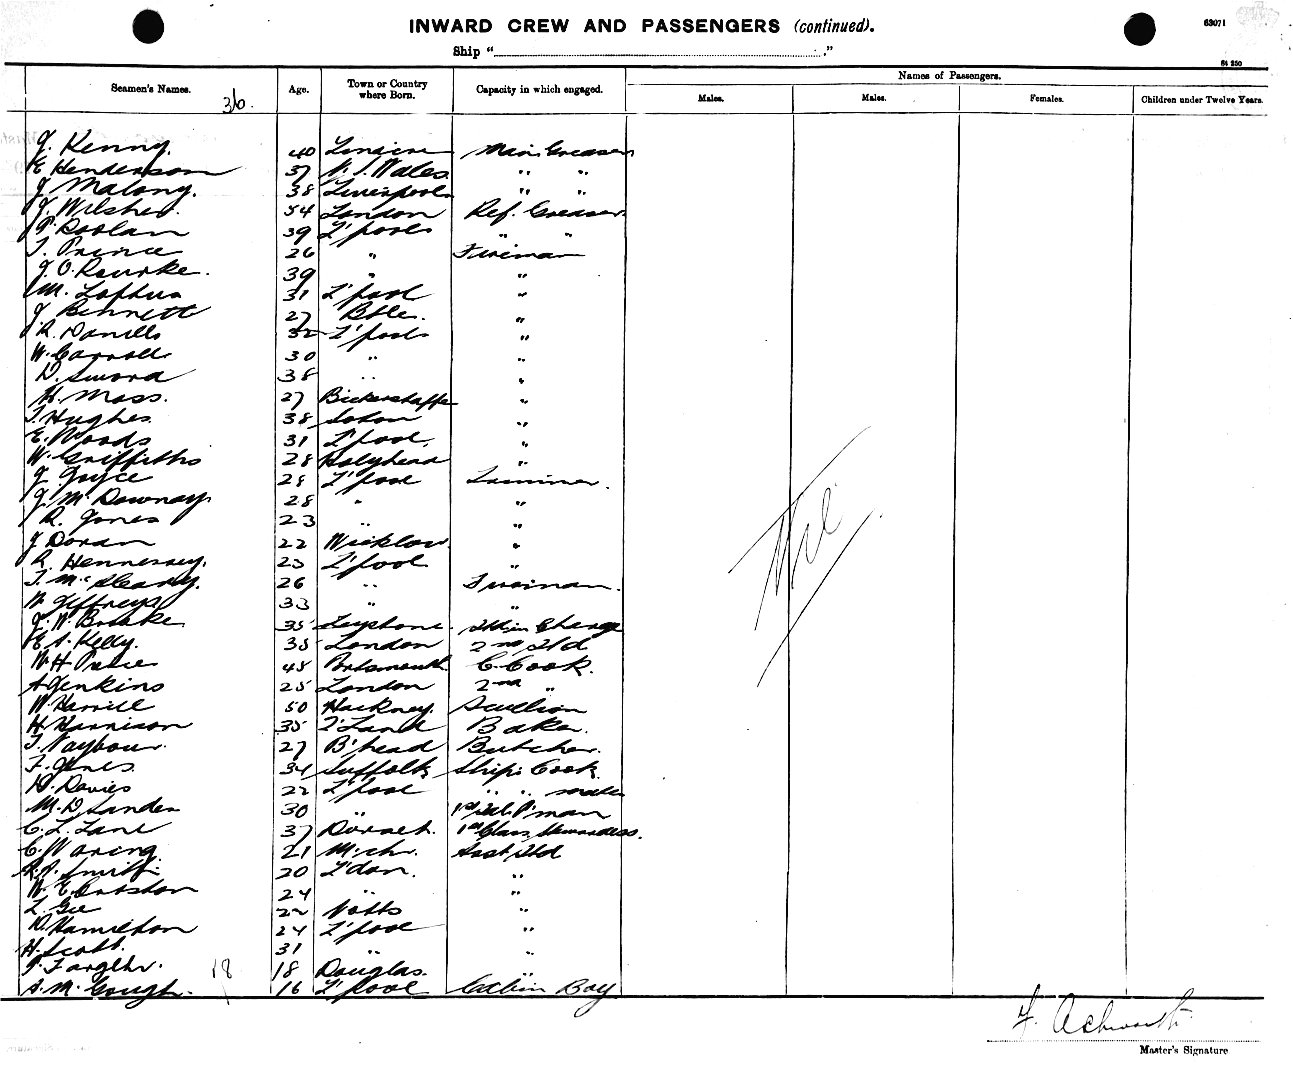 63071
INWARD CREW AND PASSENGERS (continued).
Ship " ."
64 250
Names of Passengers.
Seamen's Names. Age. Town or Country where Born. Capacity in which engaged. Males. Males. Females. Children under Twelve Years.
36.
J. Kenny. 40 Main Greaser
E Henderson 37 N. S. Wales " "
J Malony. 38 Liverpool " "
J. Wilsher. 54 London Ref. Greaser
P. Doolan 39 L'pool " "
T. Prince 26 " Fireman
J. O. Rourke. 39 " "
M. Loftus 31 L'pool "
J Bennett 27 Btle. "
R. Daniells 32 L'pool "
W. Carroll 30 " "
D. Sword 38 " "
H. Moss. 27 Bickerstaffe "
T. Hughes. 38 Soton "
E. Woods 31 L'pool, "
W. Griffiths 28 Holyhead "
J Joyce 28 L'pool Trimmer.
J. McDownay 28 " "
R. Jones 23 " "
J Doran 22 Wicklow "
R. Hennessey. 23 L'pool "
T. Mc 26 " Fireman.
W. Jeffreys 33 " "
J. W. 35 Leystone. Std in Charge
E A. Kelly. 35 London 2nd Std
W. H 45 Portsmouth C. Cook.
A Jenkins 25 London 2nd "
W. Merrill 50 Hackney. Scullion
H. Harrison 35 Baker
T. 27 B'head Butcher.
F. Jones. 34 Suffolk Ships Cook
D. Davies 22 L'pool " " mate
M. D. Landen 30 " P'man
C. L. Lane 37 Dorset. 1st Class Stewardess.
C. Waring. 21 M'chr. Asst Std
Smith 20 L'don. "
W. E. 24 " "
L. Gee 22 Notts "
D. Hamilton 24 L'pool "
H. Scott. 31 " "
18 18 Douglas. "
A. M. Gough. 16 L'pool Cabin Boy
Nil
F. Ashworth
Master's Signature